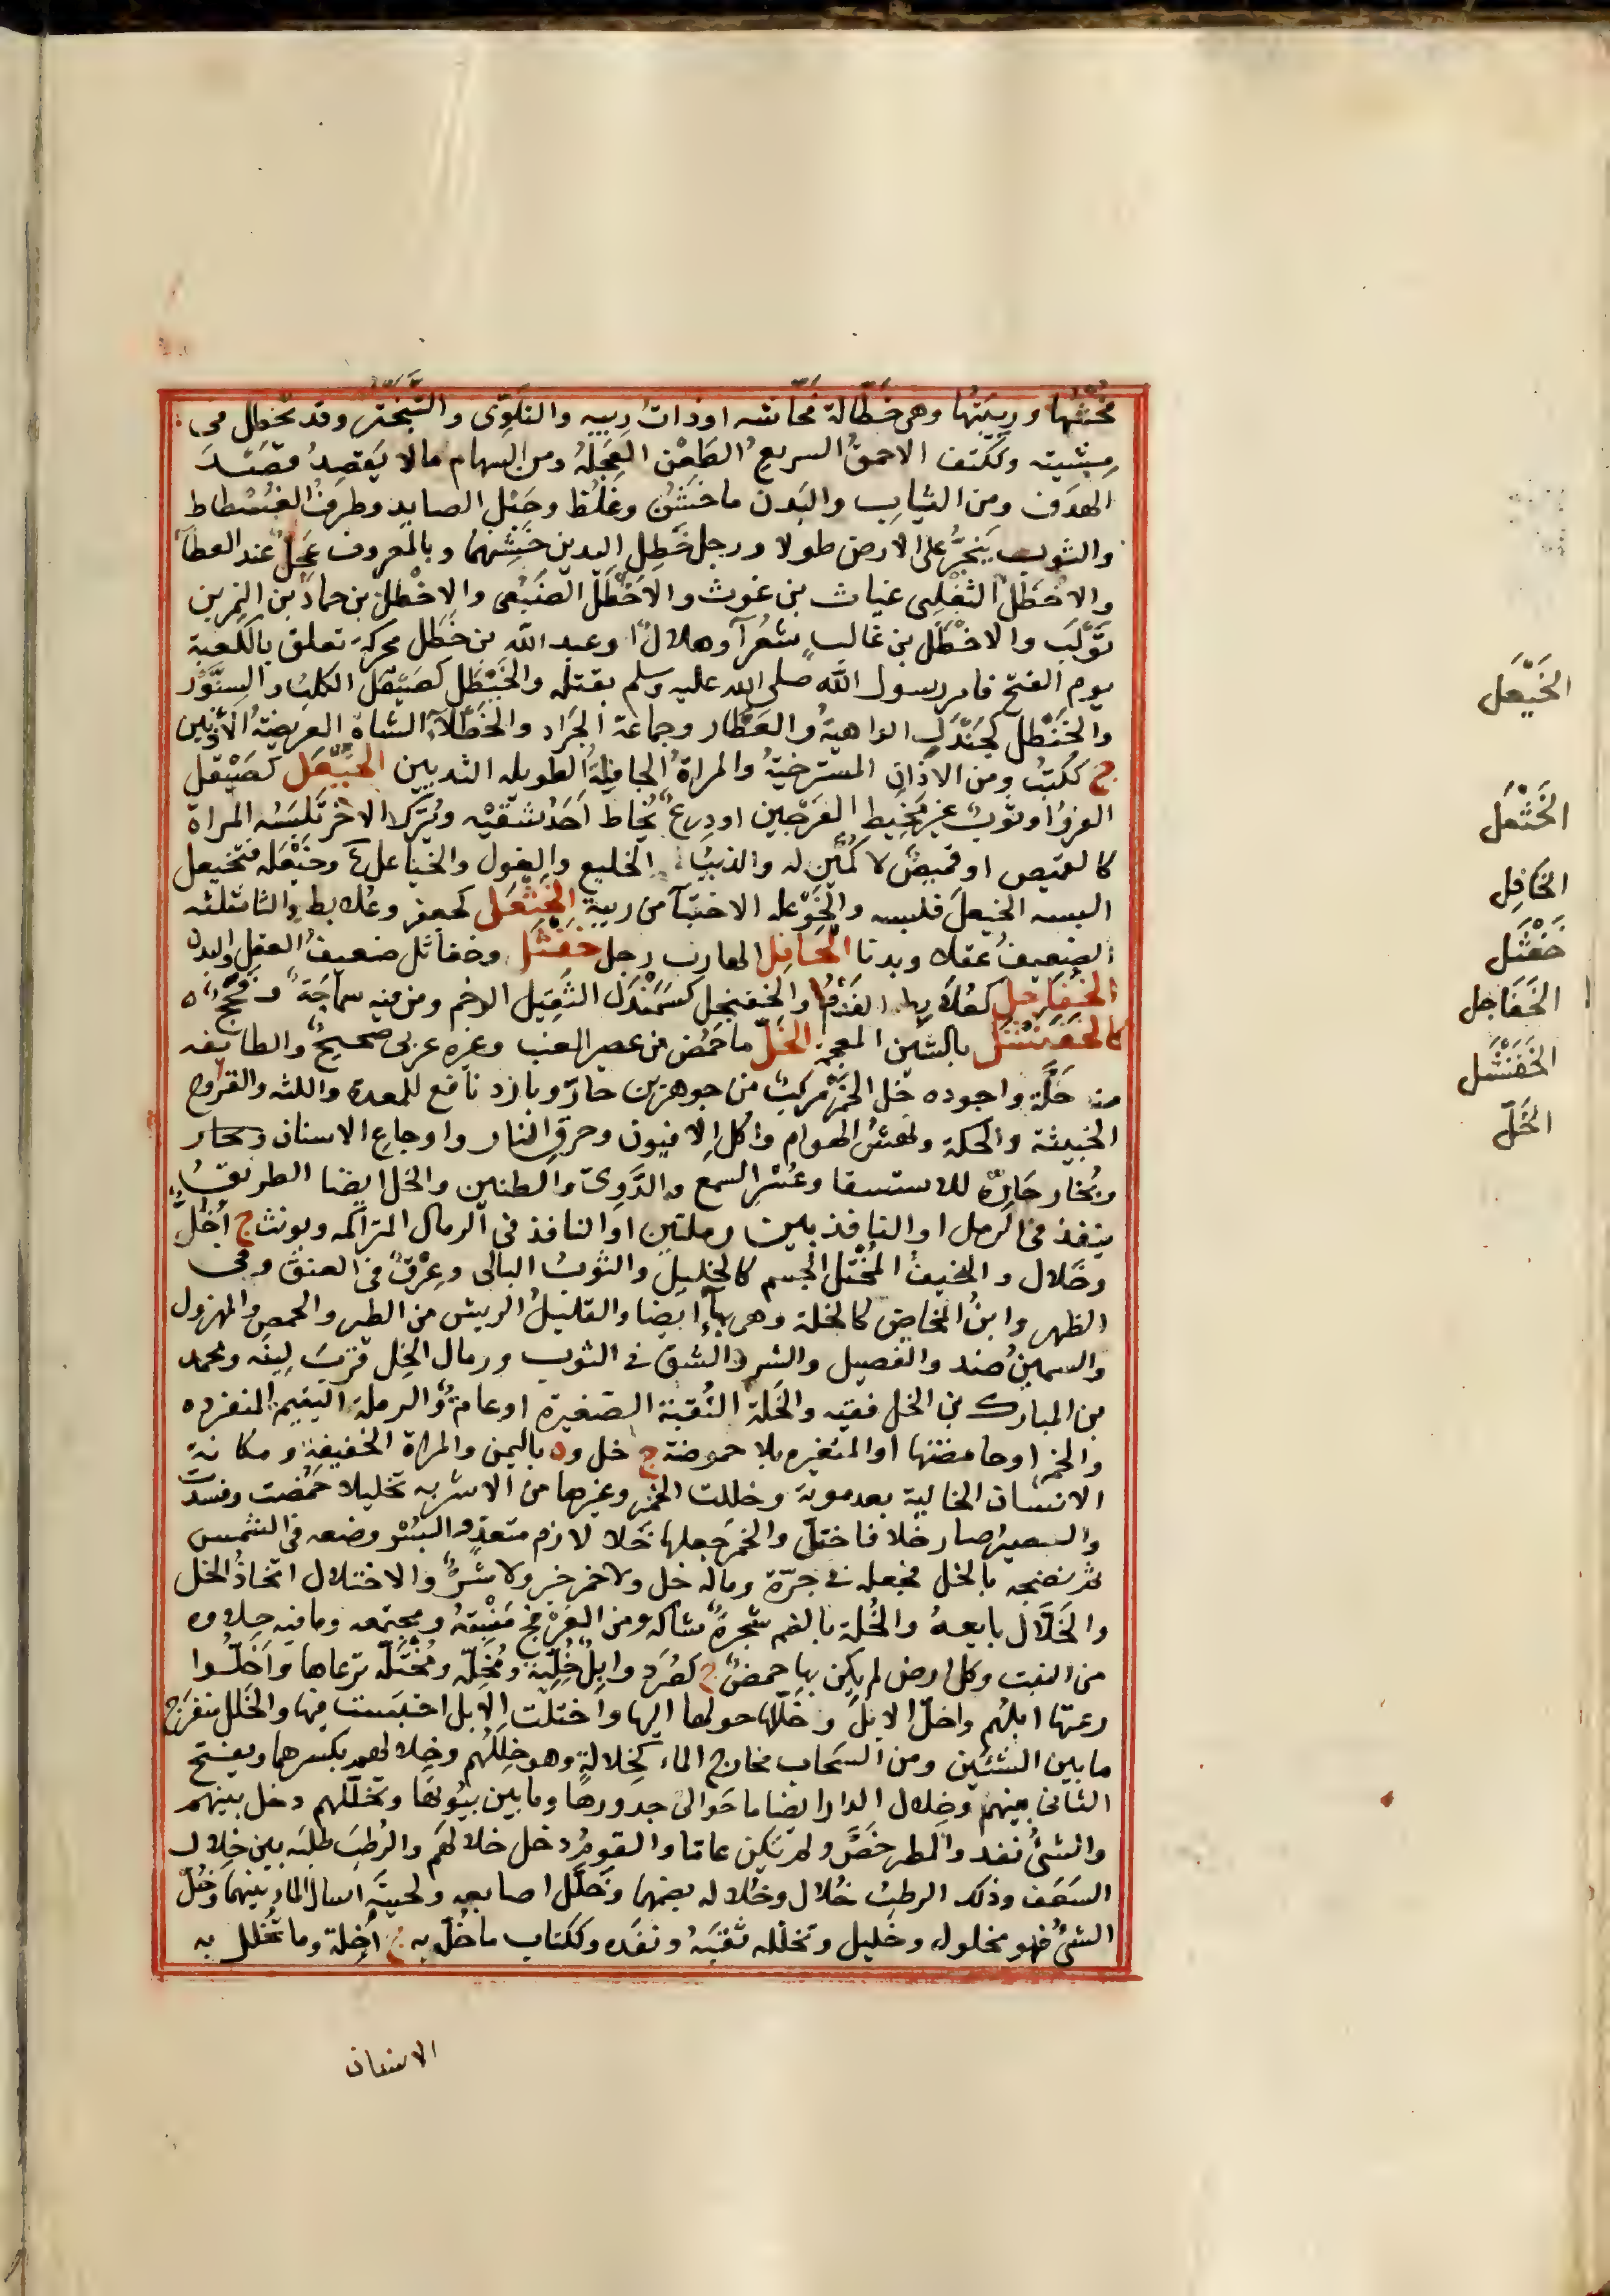 فحشها وريبتها وهى خطالة فحاشه اوذات ريبه والتلوى والتبختر وقد تخطل فى
مشيته وككتف الاحمق السريع الطعن العجله ومن السهام مالا يقصد قصد
الهدف ومن الثياب والبدن ماخشن وغلظ وحبل الصايد وطرف الفسطاط
والثوب ينجر على الارض طولا ورجل خطل اليدين خشنهما وبالمعروف عجل عند العطآ
والاخطل التغلبى غياث بن غوث والاخطل الضبعى والاخطل بن حماد بن النمر بن
تولب والاخطل بن غالب شعرآ وهلال وعبد الله بن خطل محركة تعلق بالكعبة
يوم الفتح فامر رسول الله صلى الله عليه وسلم بقتله والخيطل كصيقل الكلب والسنور
والخنطل كجندل الداهية والعطار وجماعة الجراد والخطلآء الشاة العريضة الأذنين
ج ككتب ومن الاذان المسترخية والمراة الجافية الطويله الثديين الخيعل كصيقل
الفرو اوثوب غير مخيط الفرجين اودرع يخاط احد شقيه ويترك الاخر تلبسه المراة
كالقميص اوقميص لا كمين له والذيب الخليع والغول والخياعل ع وخيعله فتخيعل
البسه الخيعل فلبسه والخوعله الاختبآ من ريبة الخثعل كجعفر وعلابط والثا مثلثه
الضعيف عقلا وبدنا الخافل الهارب رجل خفثل وخفاثل ضعيف العقل والبدن
الخفاجل كعلابط الفدم والخفنجل كسمندل الثقيل الوخم ومن فيه سماجة وفحج
كالخفنشل بالشين المعجمه الخل ماحمض من عصير العنب وغيره عربى صحيح والطايفه
منه خلة واجوده خل الخمر مركب من جوهرين حار وبارد نافع للمعدة واللثه والقروح
الخبيثة والحكة ونهش الهوام واكل الافيون وحرق النار واوجاع الاسنان
وبخار حاره للاستسقا وعسر السمع والدوى والطنين والخل ايضا الطريق
ينفذ فى الرمل او النافذ بين رملتين او النافذ فى الرمال المتراكمه ويونث ج أخل
وخلال والنحيف المختل الجسم كالخليل والثوب البالى وعرق فى العنق وفى
الظهر وابن المخاض كالخلة وهى بهآء ايضا والقليل الريش من الطير والحمض والمهزول
والسمين ضد والفصيل والشر والشق فى الثوب ورمال الخل قرب لينه ومحمد
بن المبارك بن الخل فقيه والخلة الثقبة الصغيرة اوعامة والرملة اليتيمة المنفرده
والخمر اوحامضتها اوالمتغيره بلا حموضة ج خل وة باليمن والمراة الخفيفة ومكانة
الانسان الخالية بعد موته وخللت الخمر وغيرها من الاشربه تخليلا حمضت وفسدت
والعصير صار خلا فاختل والخمر جعلها خلا لازم متعد والبسر وضعه فى الشمس
ثم نضحه بالخل فجعله فى جرة وماله خل ولاخمر خير ولا شر والاختلال اتخاذ الخل
والخلال بايعه والخلة بالضم شجرة شاكه ومن العرفج منبته ومجتمعه ومافيه حلاوه
من النبت وكل ارض لم يكن بها حمض ج كصرد وابل خلية ومخلة ومختله ترعاها واخلوا
رعتها ابلهم واخل الابل وخلها حولها اليها واختلت الابل احتبست فيها والخلل منفرج
مابين الشئين ومن السحاب مخارج الماء كخلالة وهو خللهم وخلالهم بكسرهما ويفتح
الثانى بينهم وخلال الدار ايضا ماحوالى جدورها ومابين بيوتها وتخللهم دخل بينهم
والشئ نفذ والمطر خص ولم يكن عاما والقوم دخل خلالهم والرطب طلبه بين خلال
السعف وذلك الرطب خلال وخلاله بضمهما وخلل اصابعه ولحيته اسال الماء بينهما وخل
الشئ فهو مخلول وخليل وتخلله ثقبه ونفذه وككتاب ماخل به ج أخلة وماتخلل به
الاسنان
الخيعل
الخثعل
الخافل
خفثل
الخفاجل
الخفنشل
الخل